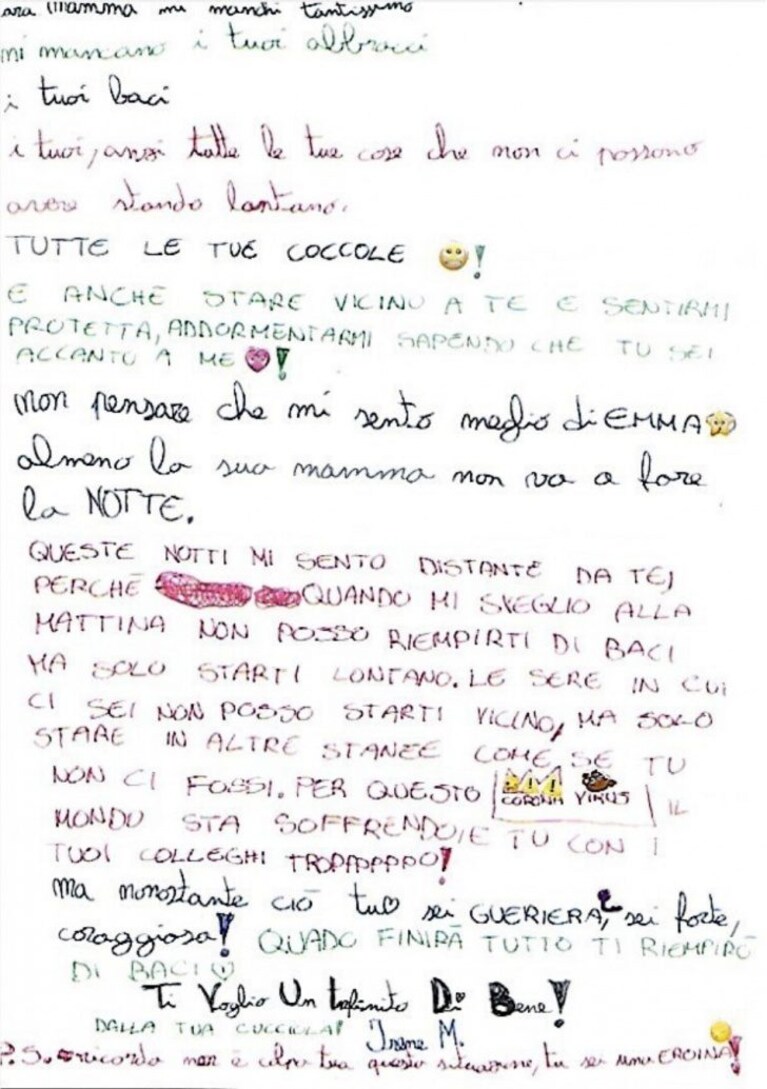 ara Mamma mi manchi tantissimo
mi mancano i tuoi abbracci
i tuoi baci
i tuoi, anzi tutte le tue cose che non ci possono
avere stando lontano.
TUTTE LE TUE COCCOLE !
E ANCHE STARE VICINO A TE E SENTIRMI
PROTETTA, ADDORMENTARMI SAPENDO CHE TU SEI
ACCANTO A ME !
non pensare che mi sento meglio di EMMA
almeno la sua mamma non va a fare
la NOTTE.
QUESTE NOTTI MI SENTO DISTANTE DA TE,
PERCHÉ QUANDO MI SVEGLIO ALLA
MATTINA NON POSSO RIEMPIRTI DI BACI
MA SOLO STARTI LONTANO. LE SERE IN CUI
CI SEI NON POSSO STARTI VICINO, MA SOLO
STARE IN ALTRE STANZE COME SE TU
NON CI FOSSI. PER QUESTO CORONA VIRUS IL
MONDO STA SOFFRENDO, E TU CON I
TUOI COLLEGHI TROPPPPPPO!
ma nonostante ciò tu sei GUERIERA, sei forte,
coraggiosa! QUADO FINIRÀ TUTTO TI RIEMPIRÒ
DI BACI
Ti Voglio Un Infinito Di Bene!
DALLA TUA CUCCIOLA! Irene M.
P.S. ricorda non è colpa tua questa situazione, tu sei una EROINA!